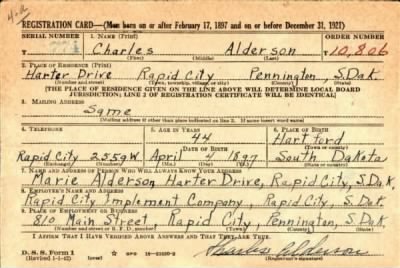 REGISTRATION CARD—(Men born on or after February 17, 1897 and on or before December 31, 1921)
SERIAL NUMBER 1. NAME (Print) ORDER NUMBER
Charles Alderson T10,806
(First) (Middle) (Last)
2. PLACE OF RESIDENCE (Print)
Harter Drive Rapid City Pennington, S.Dak.
(Number and street) (Town, township, village, or city) (County) (State)
[THE PLACE OF RESIDENCE GIVEN ON THE LINE ABOVE WILL DETERMINE LOCAL BOARD
JURISDICTION; LINE 2 OF REGISTRATION CERTIFICATE WILL BE IDENTICAL]
3. MAILING ADDRESS
Same
[Mailing address if other than place indicated on line 2. If same insert word same]
4. TELEPHONE 5. AGE IN YEARS 6. PLACE OF BIRTH
44 Hartford
DATE OF BIRTH
Rapid City 2559W April 1897 South Dakota
7. NAME AND ADDRESS OF PERSON WHO WILL ALWAYS KNOW YOUR ADDRESS
Marie Alderson Harter Drive, Rapid City, S.Dak.
8. EMPLOYER'S NAME AND ADDRESS
Rapid City Implement Company, Rapid City, S.Dak.
9. PLACE OF EMPLOYMENT OR BUSINESS
810 Main Street, Rapid City, Pennington, S.Dak.
I AFFIRM THAT I HAVE VERIFIED ABOVE ANSWERS AND THAT THEY ARE TRUE.
D. S. S. Form 1
(Revised 1-1-42) (over)
Charles Alderson